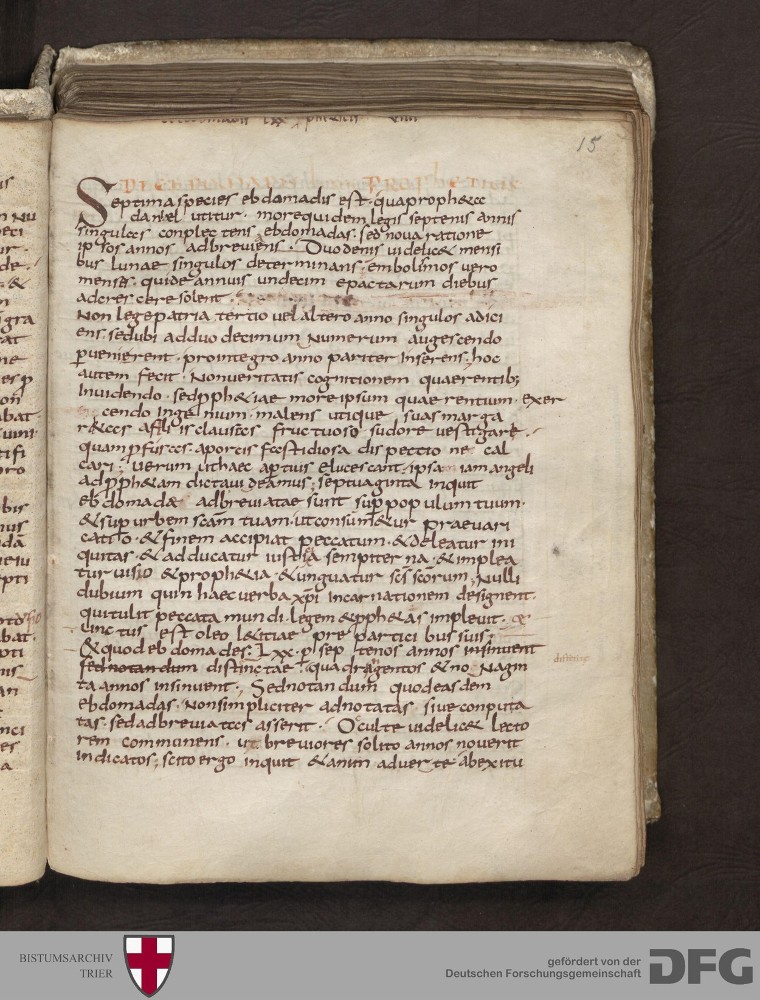 15
Septima species ebdomadis est· qua propheta
daniel utitur· more quidem legis septenis annis
singulas conplectens ebdomadas· sed noua ratione
ipsos annos adbreuiens· Duodenis uidelicet mensi
bus lunae singulos determinans· embolimos uero
menses· qui de annuis undecim epactarum diebus
adcrescere solent·
Non lege patria tertio uel altero anno singulos adici
ens· sed ubi ad duodecimum numerum augescendo
puenierent· pro integro anno pariter inserens· hoc
autem fecit· Non ueritatis cognitionem quaerentib;
Inuidendo· sed pphetiae more ipsum quaerentum· exer
cendo ingenium· malens utique suas marga
ritas a filiis clausas fructuoso sudore uestigare·
quam pfusas· a porcis fastidiosa dispectio ne cal
cari; Uerum ut haec aptius elucescant· ipsa iam angeli
ad pphetam dicta uideamus; septuaginta inquit
ebdomadae adbreuiatae sunt sup populum tuum·
& sup urbem scam tuam· ut consum&ur praeuari
catio· & finem accipiat peccatum· & deleatur ini
quitas· & adducatur iustitia sempiterna· & implea
tur uisio & proph&ia· & unguatur scs scorum; Nulli
dubium quin haec uerba xpi incarnationem designent·
qui tulit peccata mundi· legem & pph&as impleuit·
unctus est oleo l&itiae pre participibus suis;
& quod ebdomades· Lxx· p septenos annos insinuent
sed notandum distinctae· quadragentos & nonagin
ta annos insinuent·; Sed notandum quod easdem
ebdomadas· Non simpliciter adnotatas siue conputa
tas· sed adbreuiatas asserit· Oculte uidelicet lecto
rem commonens· ut breuiores solito annos nouerit
indicatos; scito ergo inquit & animaduerte ab exitu
BISTUMSARCHIV
TRIER
gefördert von der
Deutschen Forschungsgemeinschaft
DFG